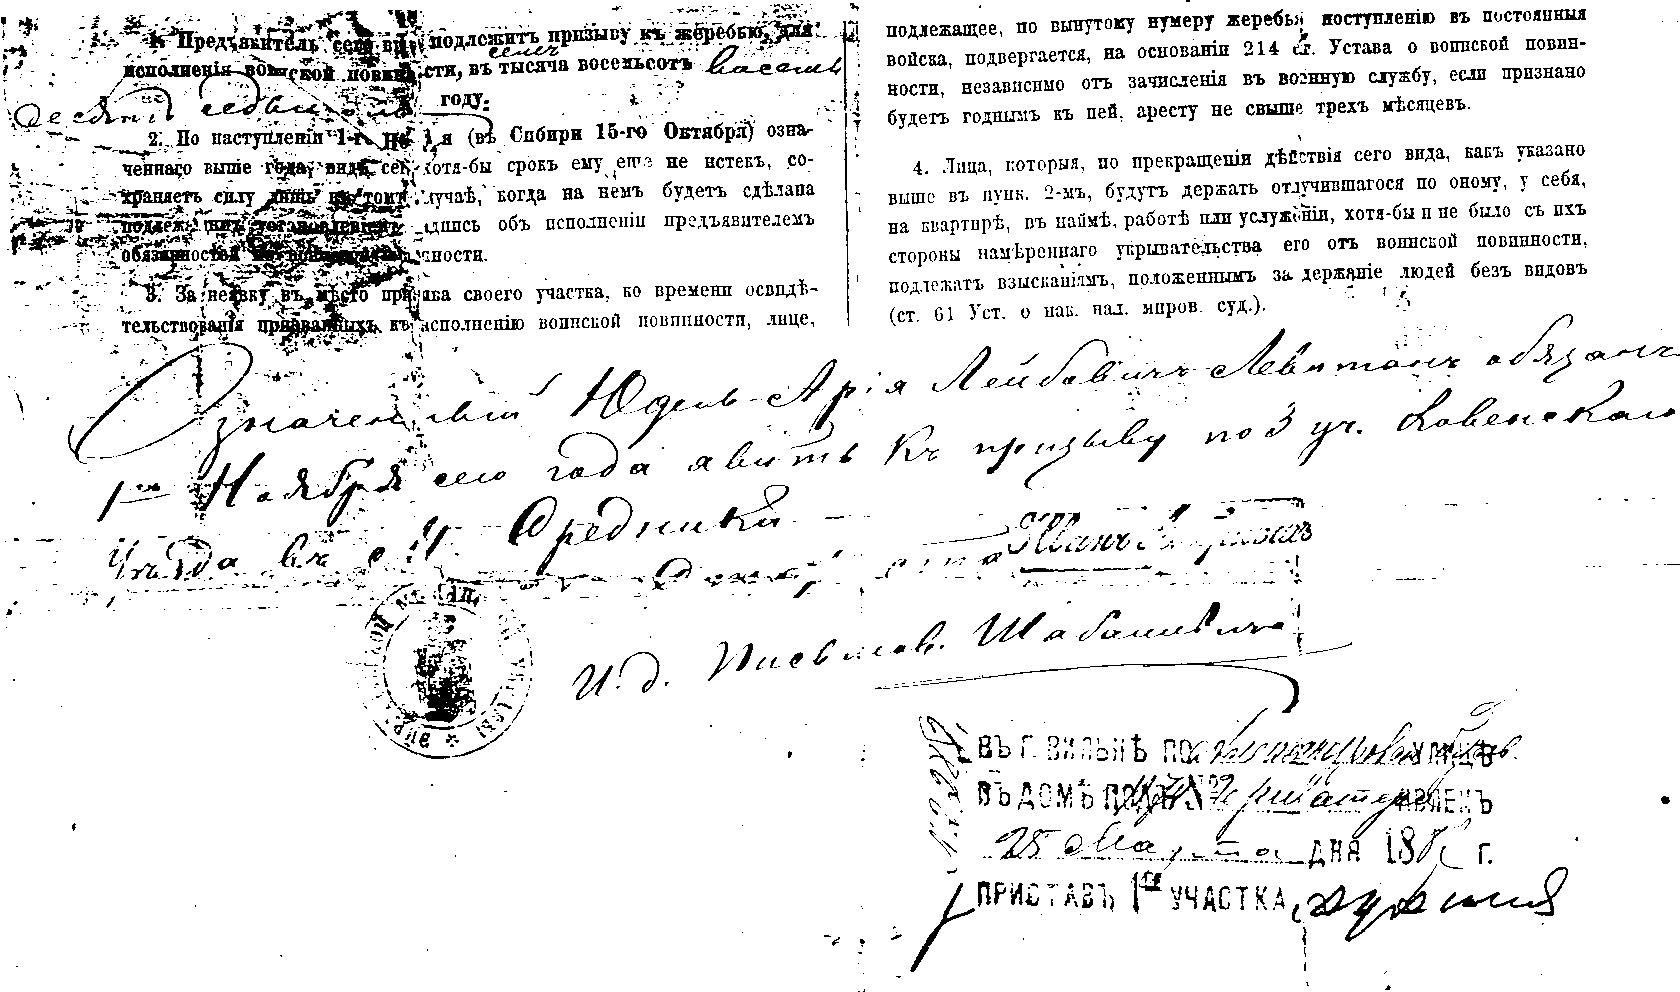 1. Предъявитель сего вида подлежитъ призыву къ жеребью, для
исполненія воинской повинности, въ тысяча восемьсотъ восемь
десятъ седьмомъ году.
2. По наступленіи 1-го Ноября (въ Сибири 15-го Октября) озна-
ченнаго выше года, видъ сей, хотя-бы срокъ ему еще не истекъ, со-
храняетъ силу лишь въ томъ случаѣ, когда на немъ будетъ сдѣлана
подлежащимъ установленіемъ надпись объ исполненіи предъявителемъ
обязанностей по воинской повинности.
3. За неявку въ мѣсто призыва своего участка, ко времени освидѣ-
тельствованія призванныхъ къ исполненію воинской повинности, лице,
подлежащее, по вынутому нумеру жеребья поступленію въ постоянныя
войска, подвергается, на основаніи 214 ст. Устава о воинской повин-
ности, независимо отъ зачисленія въ военную службу, если признано
будетъ годнымъ къ ней, аресту не свыше трехъ мѣсяцевъ.
4. Лица, которыя, по прекращеніи дѣйствія сего вида, какъ указано
выше въ пунк. 2-мъ, будутъ держать отлучившагося по оному, у себя,
на квартирѣ, въ наймѣ, работѣ или услуженіи, хотя-бы и не было съ ихъ
стороны намѣреннаго укрывательства его отъ воинской повинности,
подлежатъ взысканіямъ, положеннымъ за держаніе людей безъ видовъ
(ст. 61 Уст. о нак. нал. миров. суд.).
Означенный Юдель-Арія Лейбовичъ Левитанъ обязанъ
1го Ноября сего года явить къ призыву по 3 уч. Ковенскаго
Уѣзда въ с. Средники
Иванъ
И. д. Письмов. Шабашевичъ
ВЪ Г. ВИЛЬНѢ ПО УЛИЦѢ
ВЪ ДОМѢ ПОДЪ № ЯВЛЕНЪ
25 Марта ДНЯ 188 Г.
ПРИСТАВЪ 1го УЧАСТКА